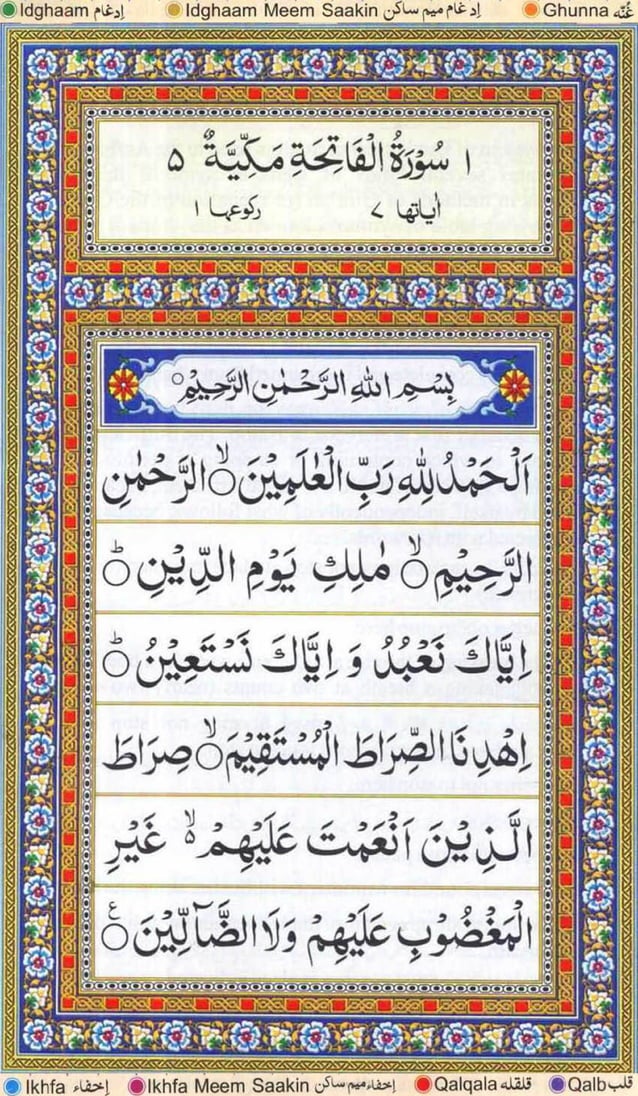 Idghaam إدغام Idghaam Meem Saakin إدغام ميم ساكن Ghunna غُنّه
١ سُوْرَةُ الْفَاتِحَةِ مَكِّيَّةٌ ٥
اٰیاتھا ٧ رکوعہا ١
بِسْمِ اللهِ الرَّحْمٰنِ الرَّحِيْمِ
اَلْحَمْدُ لِلّٰهِ رَبِّ الْعٰلَمِيْنَ ۙ الرَّحْمٰنِ
الرَّحِيْمِ ۙ مٰلِكِ يَوْمِ الدِّيْنِ ؕ
اِيَّاكَ نَعْبُدُ وَ اِيَّاكَ نَسْتَعِيْنُ ؕ
اِهْدِنَا الصِّرَاطَ الْمُسْتَقِيْمَ ۙ صِرَاطَ
الَّذِيْنَ اَنْعَمْتَ عَلَيْهِمْ ۙ۬ غَيْرِ
الْمَغْضُوْبِ عَلَيْهِمْ وَلَا الضَّآلِّيْنَ ۧ
Ikhfa إخفاء Ikhfa Meem Saakin إخفاء ميم ساكن Qalqala قلقله Qalb قلب